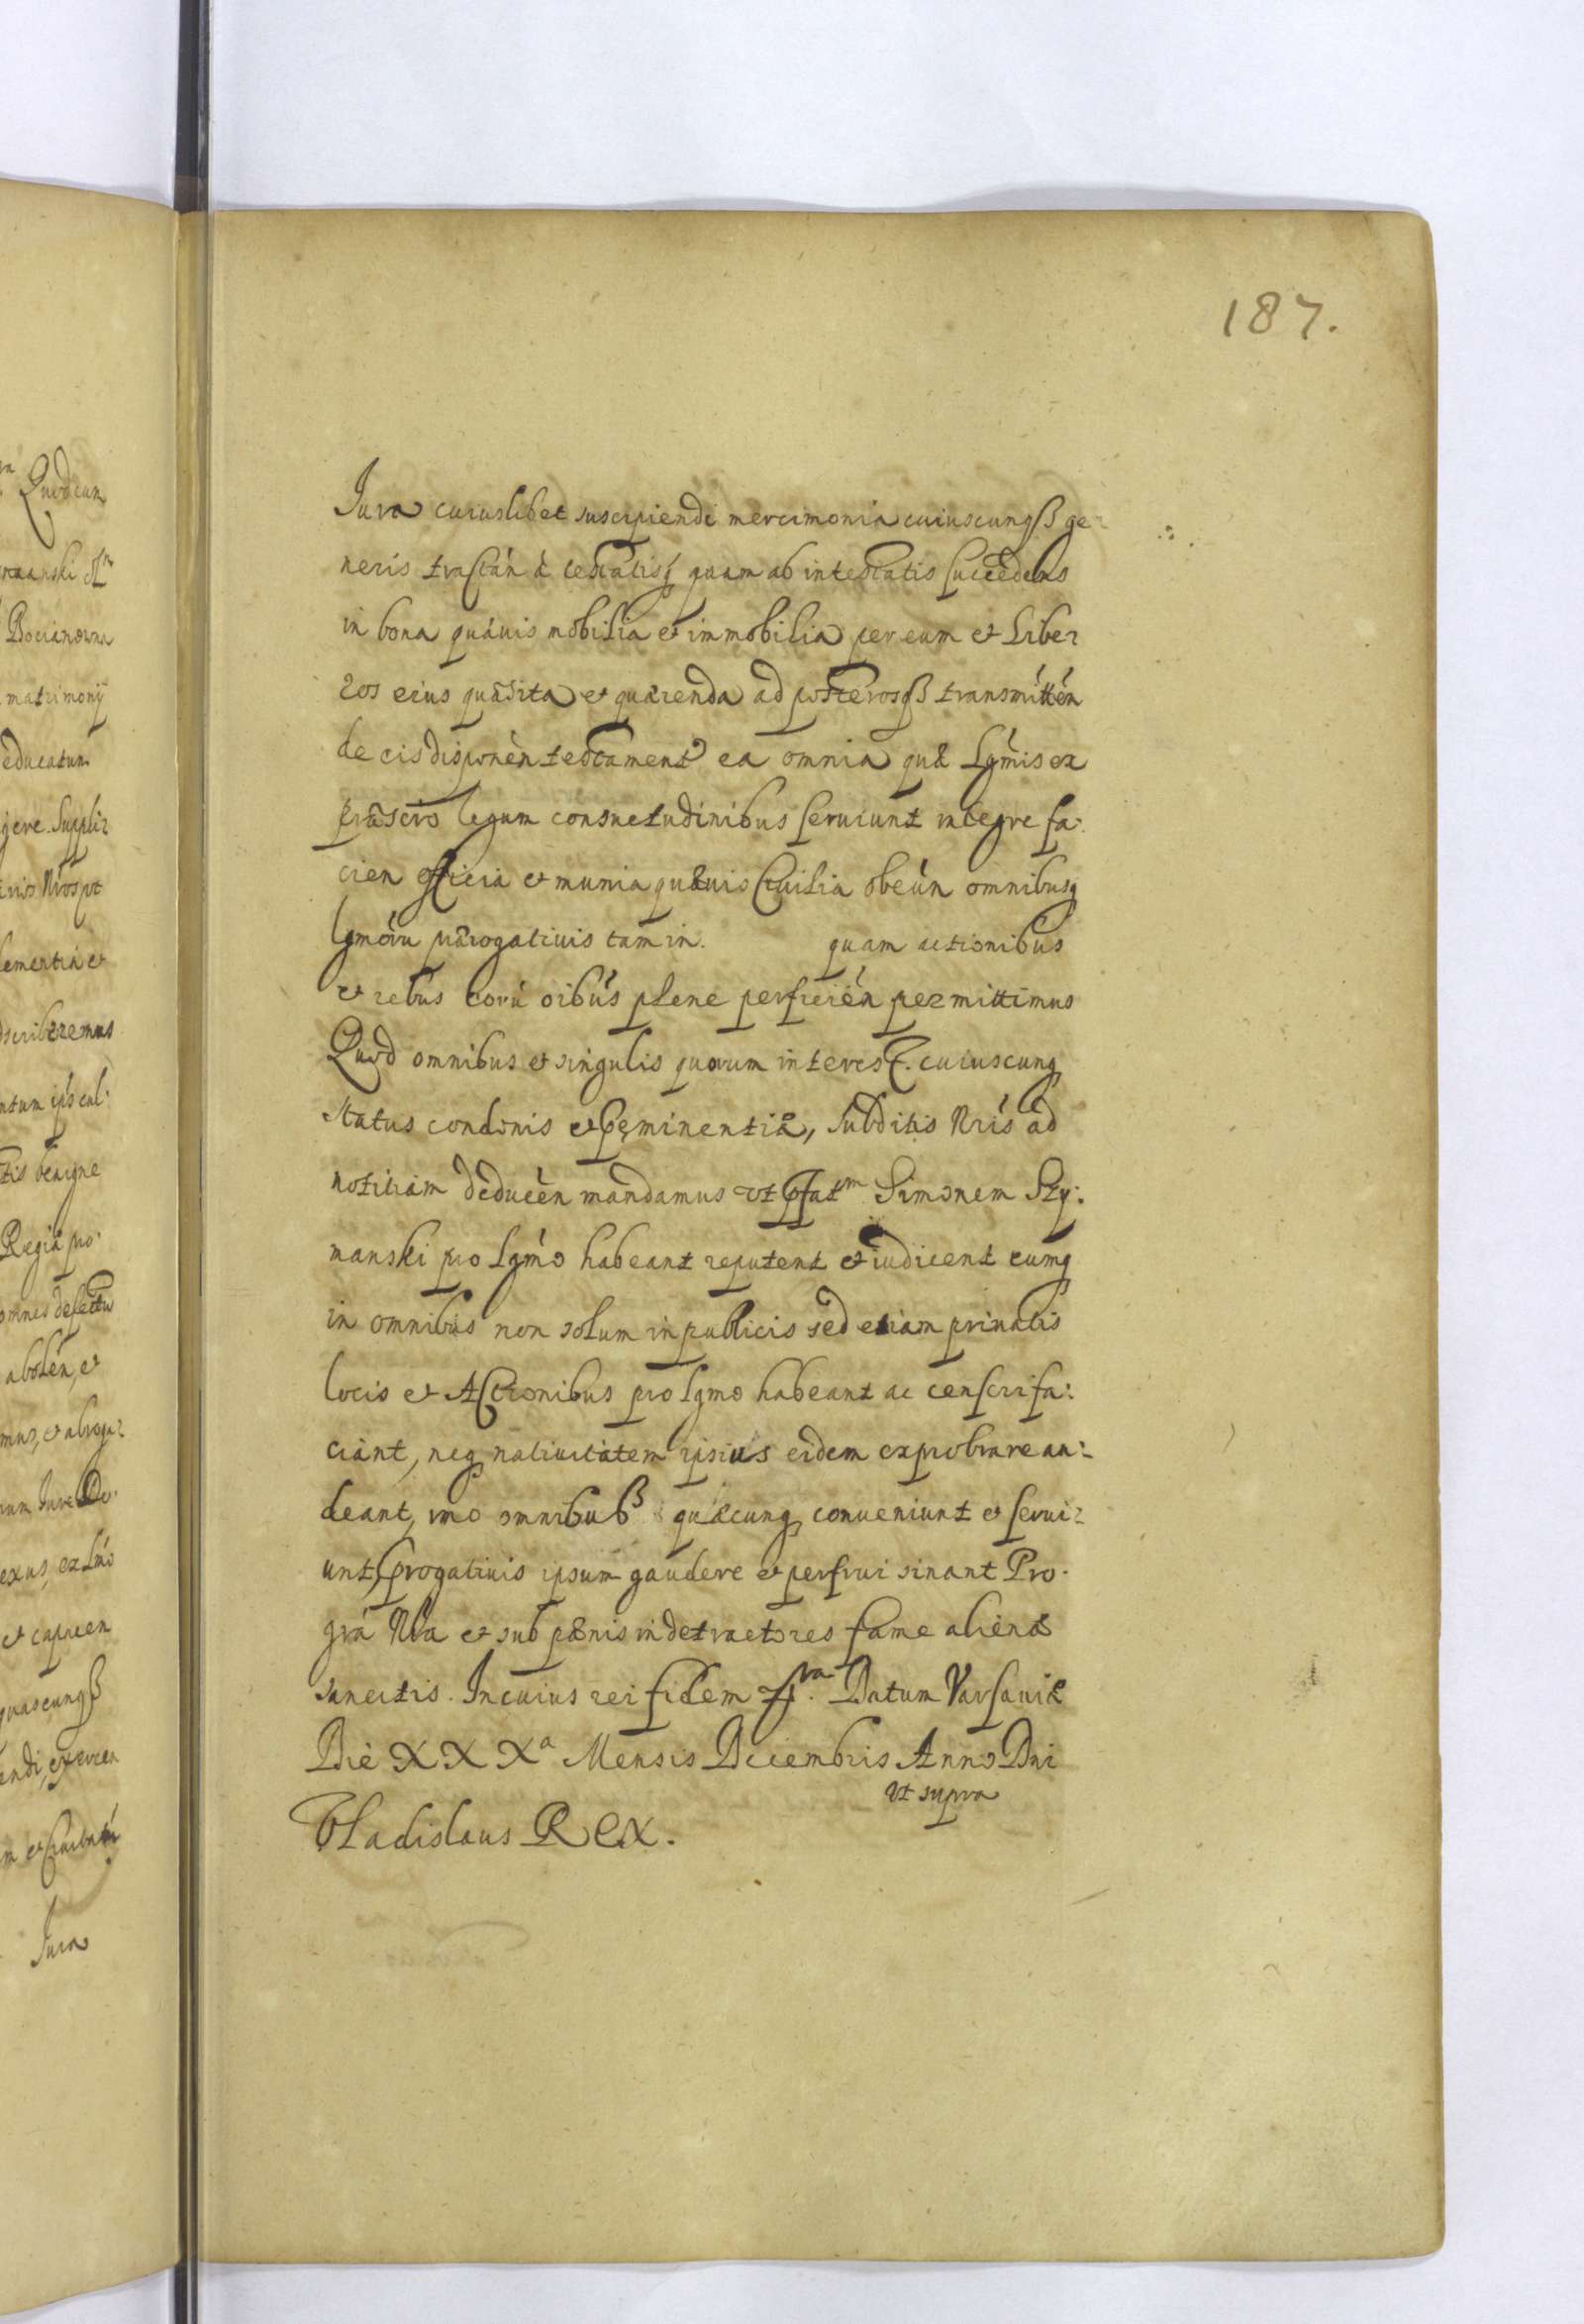 187.
Jura cuiuslibet suscipiendi mercimonia cuiuscunqß ge-
neris tractán à testatisq quam ab intestatis succedens
in bona quævis mobilia et immobilia per eum et Libe-
ros eius quæsita et quærenda ad posterosqß transmittén
de eis disponén testament ea omnia quæ Lgmis ex
præscro legum consuetudinibus serviunt integre fa:
cien officia et munia quævis Civilia obeún omnibusq
lgmoru prærogativis tam in. quam actionibus
et rebus eorú oibús plene perfruén permittimus
Quod omnibus et singulis quorum interest. cuiuscunq
status condonis et pęminentiæ, subditis Nris ad
notitiam deducén mandamus vt pfatm Simonem Szy:
manski pro Lgmo habeant reputent et iudicent eumq
in omnibus non solum in publicis sed etiam privatis
locis et Actionibus pro lgmo habeant ac censeri fa:
ciant, neq nativitatem ipsius eidem exprobrare au:
deant, imo omnibuß quæcunq conveniunt et servi-
unt, progativis ipsum gaudere et perfrui sinant Pro.
grá Nra et sub pænis in detractores fame alienæ
sancitis. In cuius rei fidem Datum Varsaviæ
Die XXXa Mensis Decembris Anno Dni
vt supra
Vladislaus Rex.
Quodcun
Bocianowna
matrimonij
educatum
Nros pt
ementiá et
tis benigne
Regiá po.
omnes defectus
abolén, et
mus, et abroga-
et capacen
quascunqß
Jura